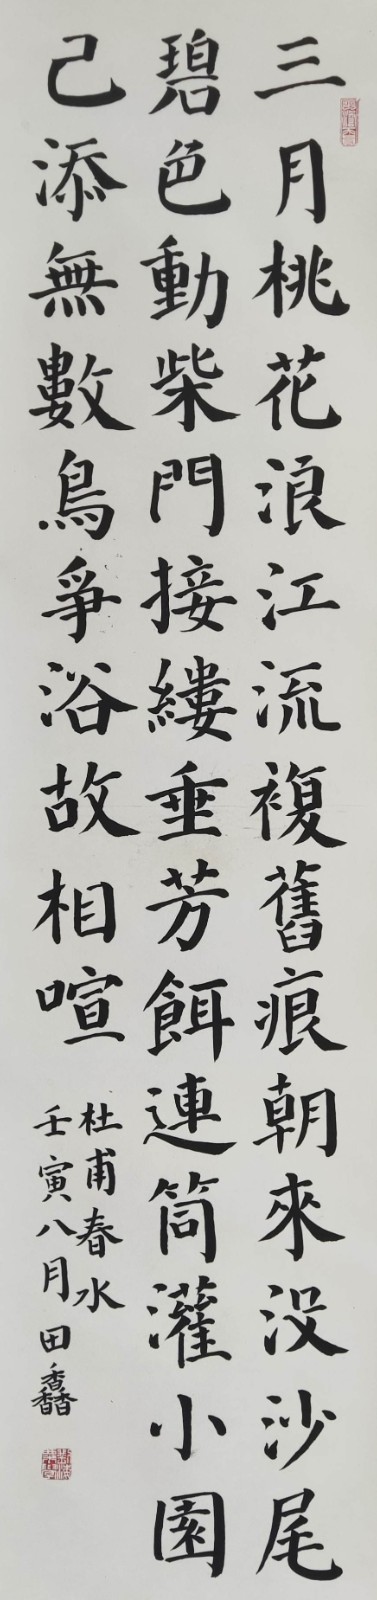 三月桃花浪江流複舊痕朝來没沙尾
碧色動柴門接縷垂芳餌連筒灌小園
己添無數鳥爭浴故相喧
杜甫春水
壬寅八月田馫